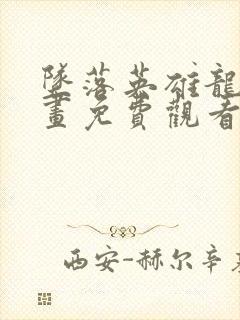 墜落英雄龍
畫免費觀看
西安-赫尔辛